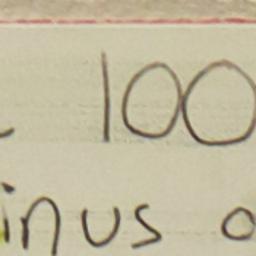 100
inus